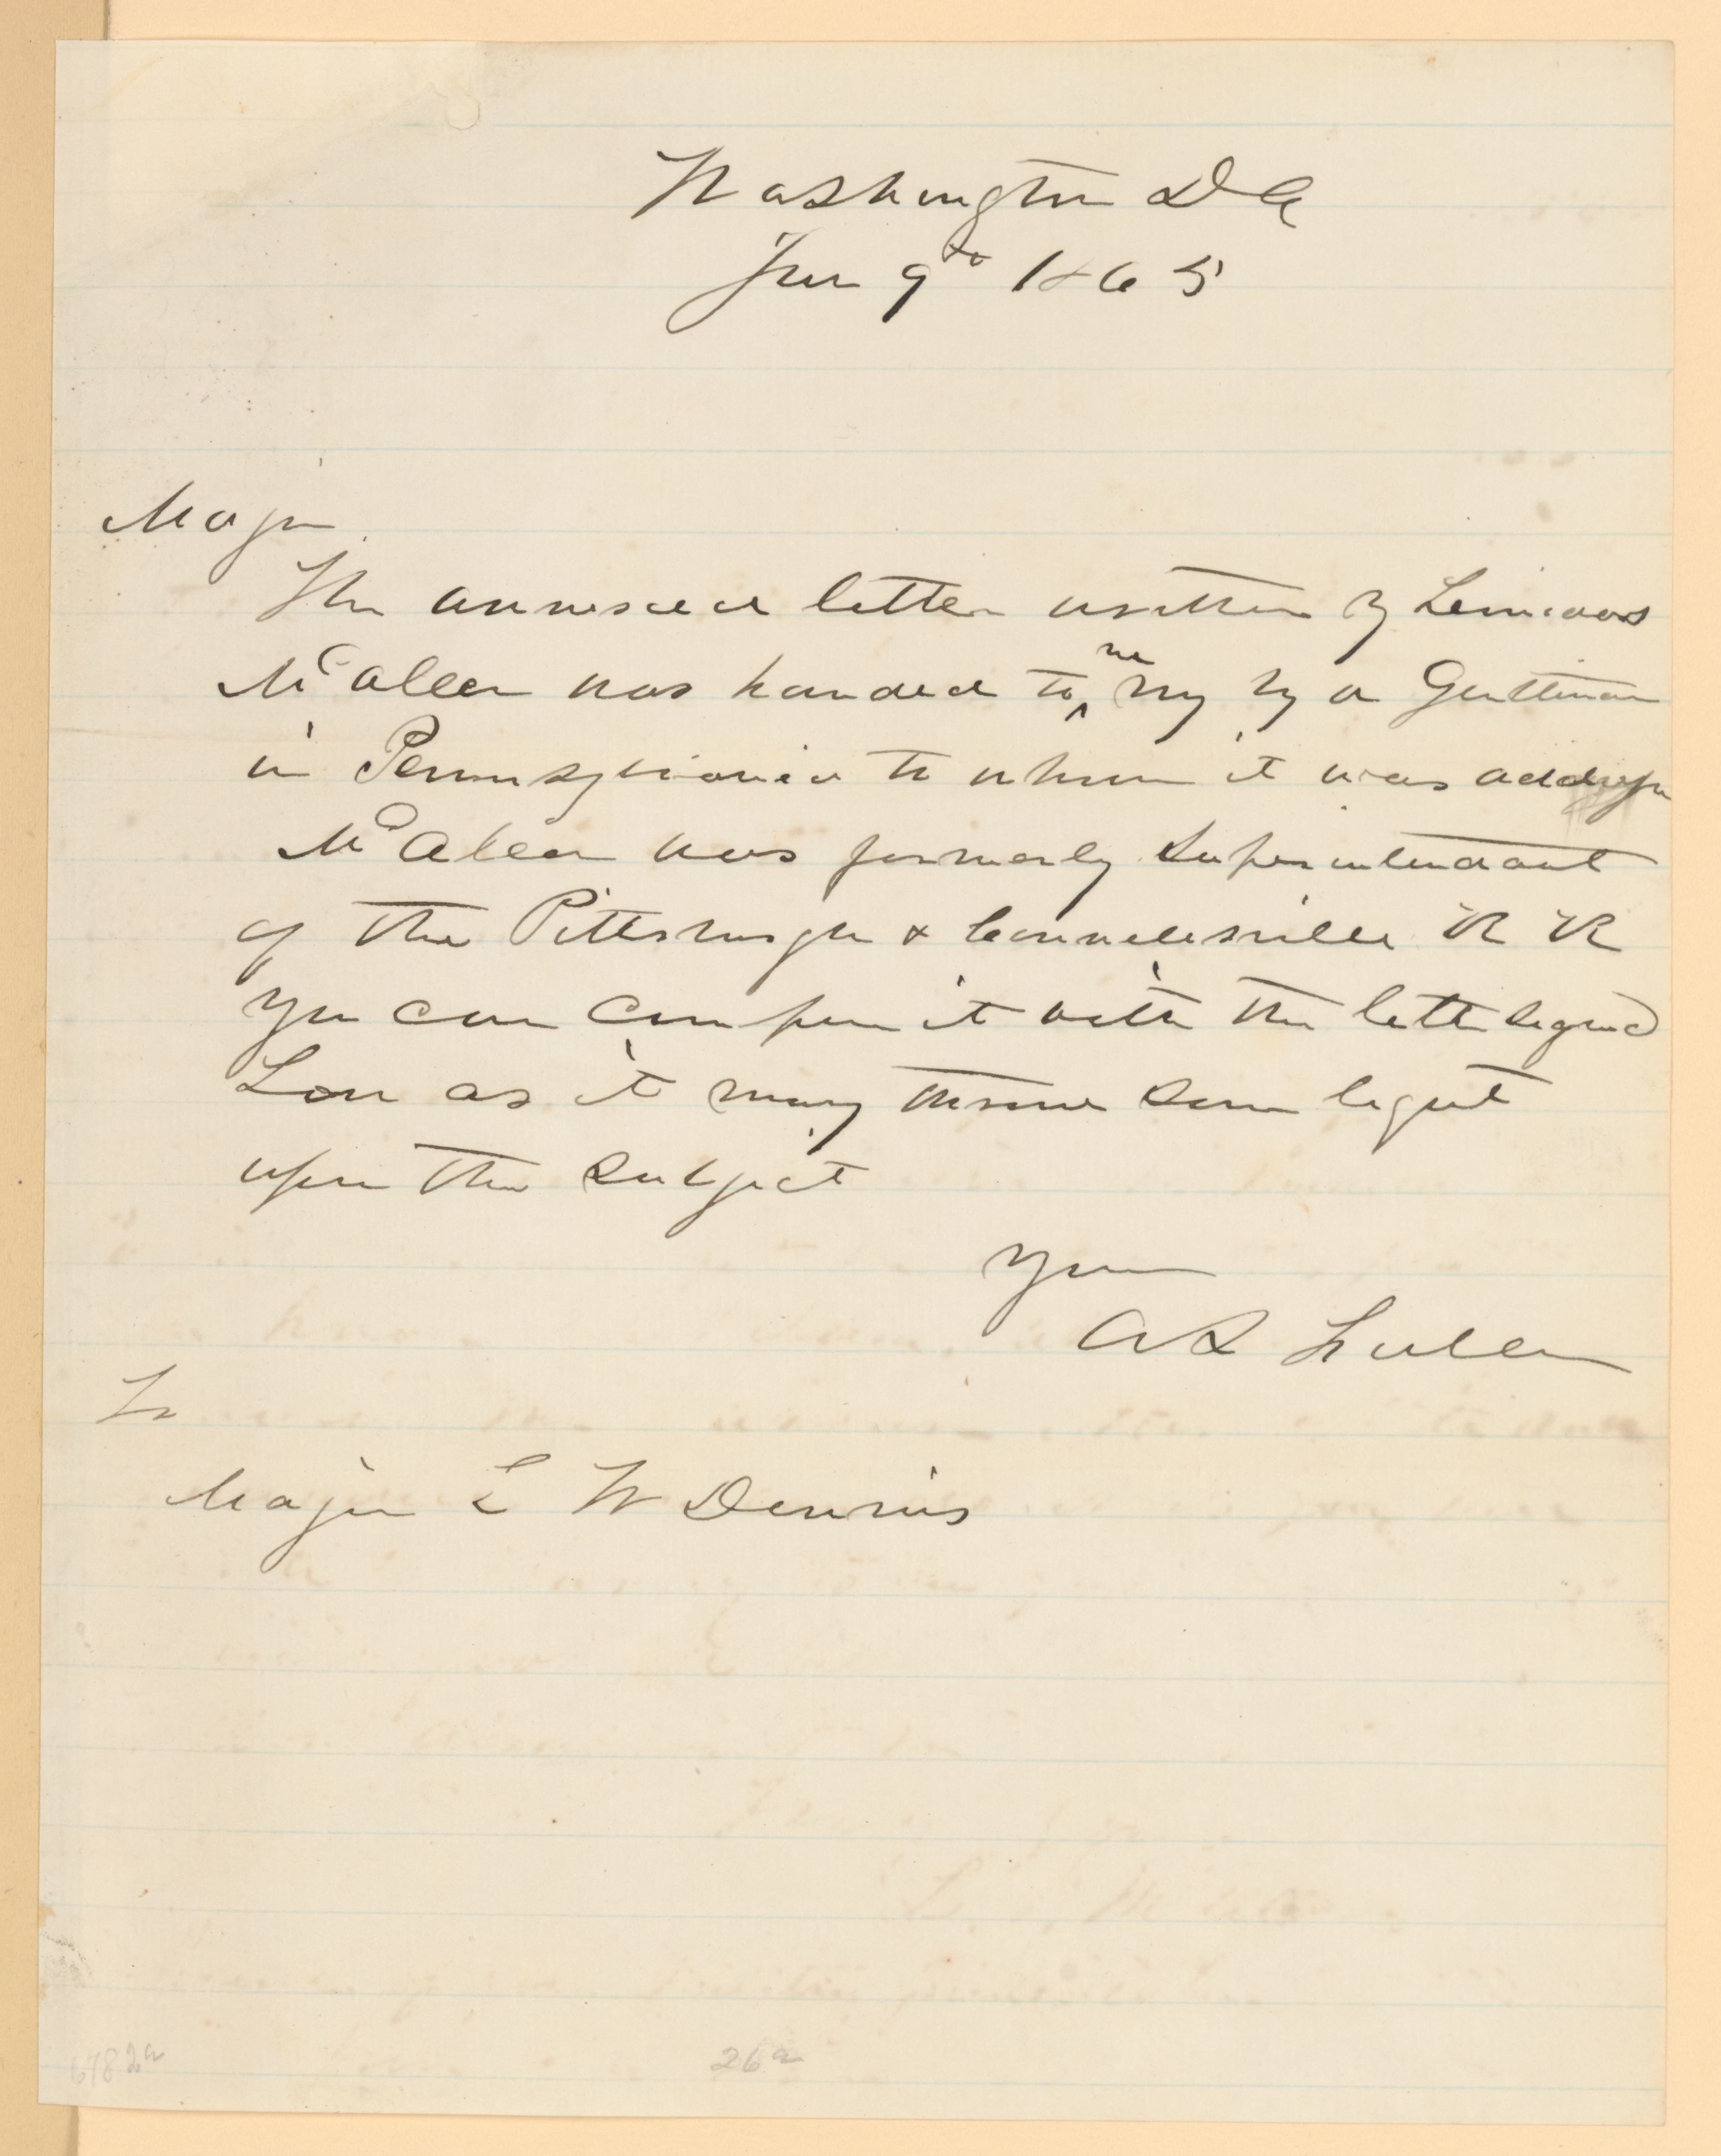 Washington DC
Jun 9th 1865
Major
The annexed letter written by
McAleer was handed to me by a Gentleman
in Pennsylvania to whom it was
McAleer was formerly Superintendant
of the Pittsburgh & Connellsville R R
You can compare it with the letter signed
Lon as it may throw some light
upon the subject
Your
To
Major L W Dennis
26a